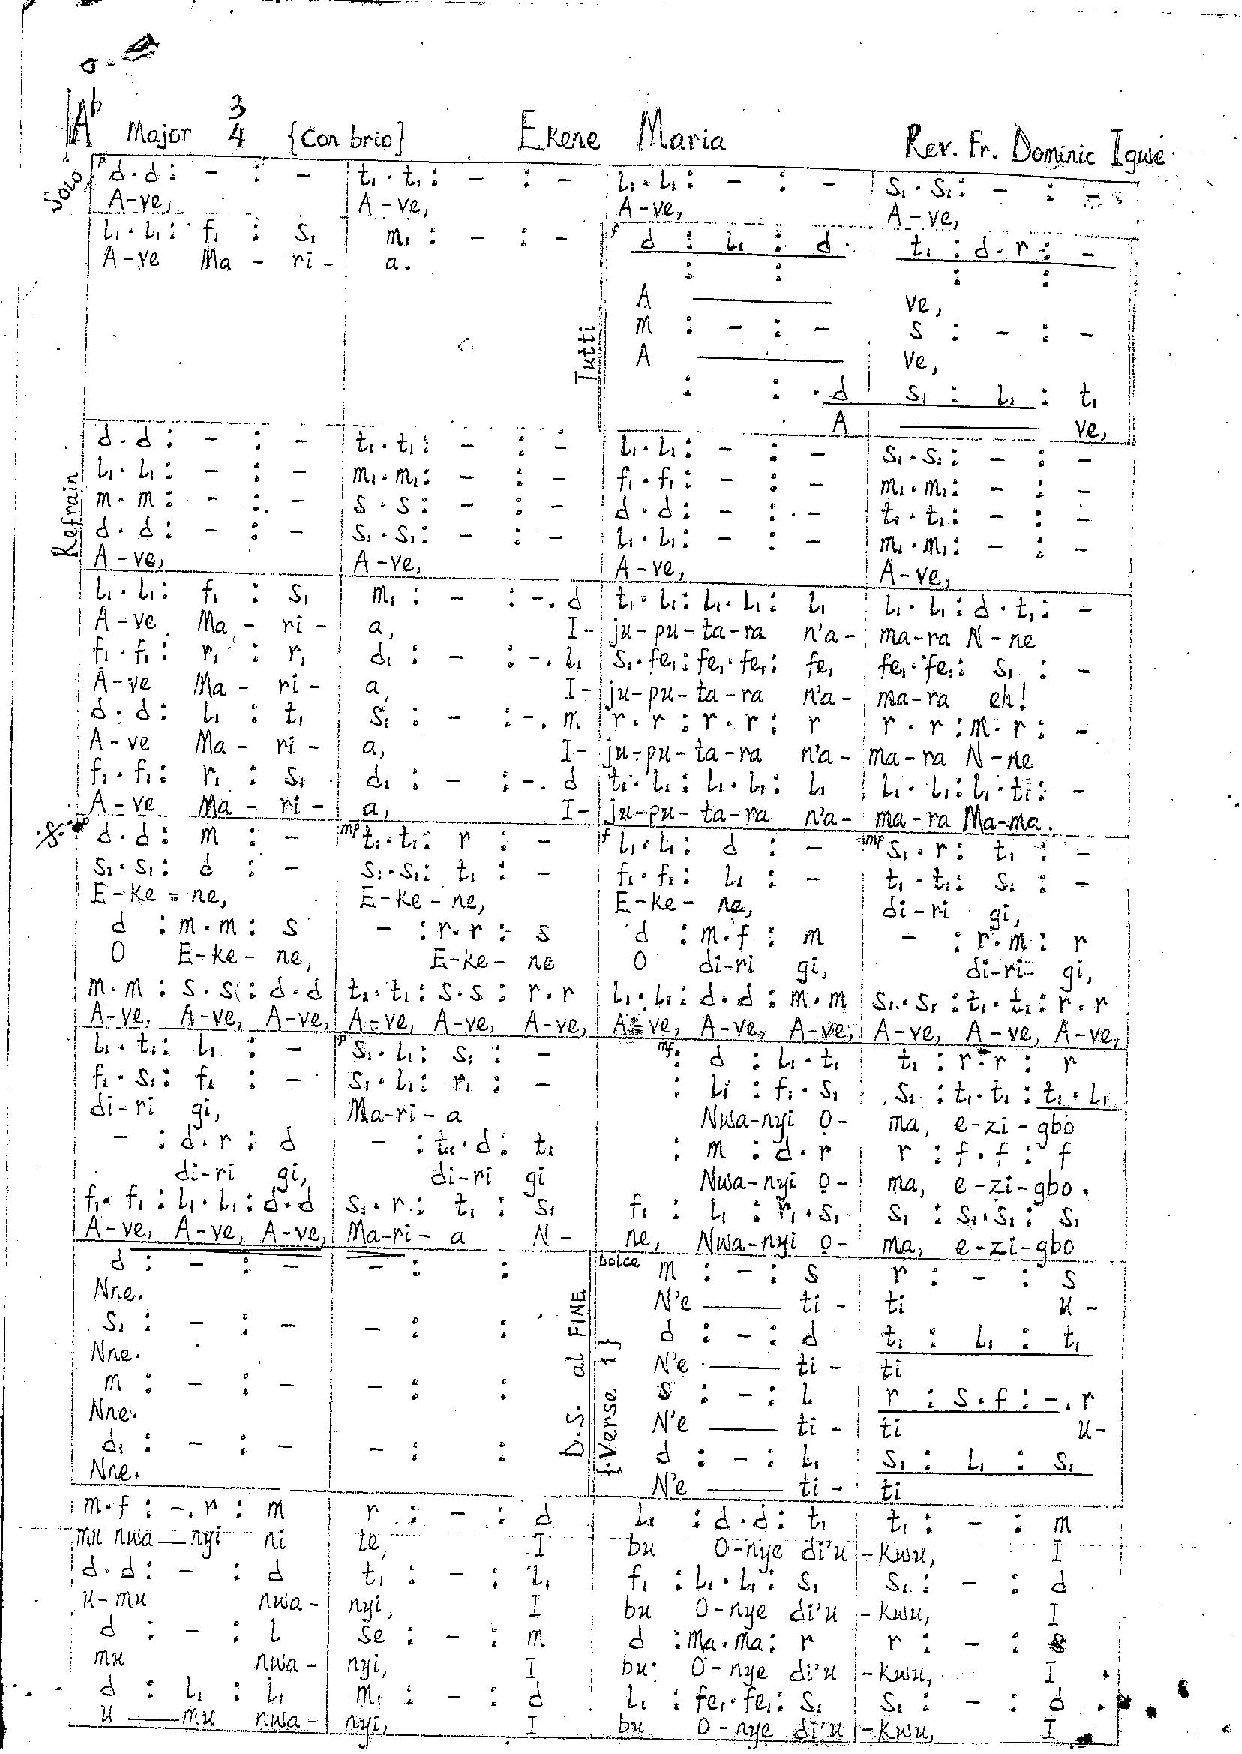 Ab Major 3/4 {Con brio} Ekene Maria Rev. Fr. Dominic Igwe
Solo
p d.d : - : - | t₁.t₁ : - : - | L₁.L₁ : - : - | S₁.S₁ : - : -
A-ve, A-ve, A-ve, A-ve,
L₁.L₁ : f₁ : S₁ | m₁ : - : - | f d : L₁ : d. | t₁ : d.r : -
A-ve Ma - ri - a.
: : : :
Tutti
A ve,
m : - : - | S : - : -
A ve,
: : .d | S₁ : L₁ : t₁
A ve,
Refrain
d.d : - : - | t₁.t₁ : - : - | L₁.L₁ : - : - | S₁.S₁ : - : -
L₁.L₁ : - : - | m₁.m₁ : - : - | f₁.f₁ : - : - | m₁.m₁ : - : -
m.m : - : - | S.S : - : - | d.d : - : - | t₁.t₁ : - : -
d.d : - : - | S₁.S₁ : - : - | L₁.L₁ : - : - | m₁.m₁ : - : -
A-ve, A-ve, A-ve, A-ve,
L₁.L₁ : f₁ : S₁ | m₁ : - : -.d | t₁.L₁ : L₁.L₁ : L₁ | L₁.L₁ : d.t₁ : -
A-ve Ma - ri - a, I- ju-pu-ta-ra n'a- ma-ra N-ne
f₁.f₁ : r₁ : r₁ | d₁ : - : -.L₁ | S₁.fe₁ : fe₁.fe₁ : fe₁ | fe₁.fe₁ : S₁ : -
A-ve Ma - ri - a, I- ju-pu-ta-ra n'a- ma-ra eh!
d.d : L₁ : t₁ | S₁ : - : -.m | r.r : r.r : r | r.r : m.r : -
A-ve Ma - ri - a, I- ju-pu-ta-ra n'a- ma-ra N-ne
f₁.f₁ : r₁ : S₁ | d₁ : - : -.d | t₁.L₁ : L₁.L₁ : L₁ | L₁.L₁ : L₁.t₁ : -
A-ve Ma - ri - a, I- ju-pu-ta-ra n'a- ma-ra Ma-ma.
d.d : m : - | mp t₁.t₁ : r : - | f L₁.L₁ : d : - | mp S₁.r : t₁ : -
S₁.S₁ : d : - | S₁.S₁ : t₁ : - | f₁.f₁ : L₁ : - | t₁.t₁ : S₁ : -
E-ke-ne, E-ke-ne, E-ke-ne, di-ri gi,
d : m.m : S | - : r.r : S | d : m.f : m | - : r.m : r
O E-ke-ne, E-ke-ne O di-ri gi, di-ri- gi,
m.m : S.S : d.d | t₁.t₁ : S.S : r.r | L₁.L₁ : d.d : m.m | S₁.S₁ : t₁.t₁ : r.r
A-ve, A-ve, A-ve, A-ve, A-ve, A-ve, A-ve, A-ve, A-ve, A-ve, A-ve, A-ve,
L₁.t₁ : L₁ : - | p S₁.L₁ : S₁ : - | mf : d : L₁.t₁ | t₁ : r.r : r
f₁.S₁ : f₁ : - | S₁.L₁ : r₁ : - | : L₁ : f₁.S₁ | S₁ : t₁.t₁ : t₁.L₁
di-ri gi, Ma-ri-a Nwa-nyi O- ma, e-zi-gbo
- : d.r : d | - : t₁.d : t₁ | : m : d.r | r : f.f : f
di-ri gi, di-ri gi Nwa-nyi O- ma, e-zi-gbo.
f₁.f₁ : L₁.L₁ : d.d | S₁.r : t₁ : S₁ | f₁ : L₁ : r₁.S₁ | S₁ : S₁.S₁ : S₁
A-ve, A-ve, A-ve, Ma-ri-a N- ne, Nwa-nyi O- ma, e-zi-gbo
D.S. al FINE
{Verse 1}
Dolce
d : - : - | - : : | m : - : S | r : - : S
Nne. N'e ti- ti u-
S₁ : - : - | - : : | d : - : d | t₁ : L₁ : t₁
Nne. N'e ti- ti
m : - : - | - : : | S : - : L | r : S.f : -.r
Nne. N'e ti- ti u-
d₁ : - : - | - : : | d : - : L₁ | S₁ : L₁ : S₁
Nne. N'e ti- ti
m.f : -.r : m | r : - : d | L₁ : d.d : t₁ | t₁ : - : m
mu nwa-nyi ni te, I bu O-nye di'u -kwu, I
d.d : - : d | t₁ : - : L₁ | f₁ : L₁.L₁ : S₁ | S₁ : - : d
u-mu nwa- nyi, I bu O-nye di'u -kwu, I
d : - : L | se : - : m | d : ma.ma : r | r : - :
mu nwa- nyi, I bu O-nye di'u -kwu, I
d : L₁ : L₁ | m₁ : - : d | L₁ : fe₁.fe₁ : S₁ | S₁ : - : d
u-mu nwa- nyi, I bu O-nye di'u -kwu, I